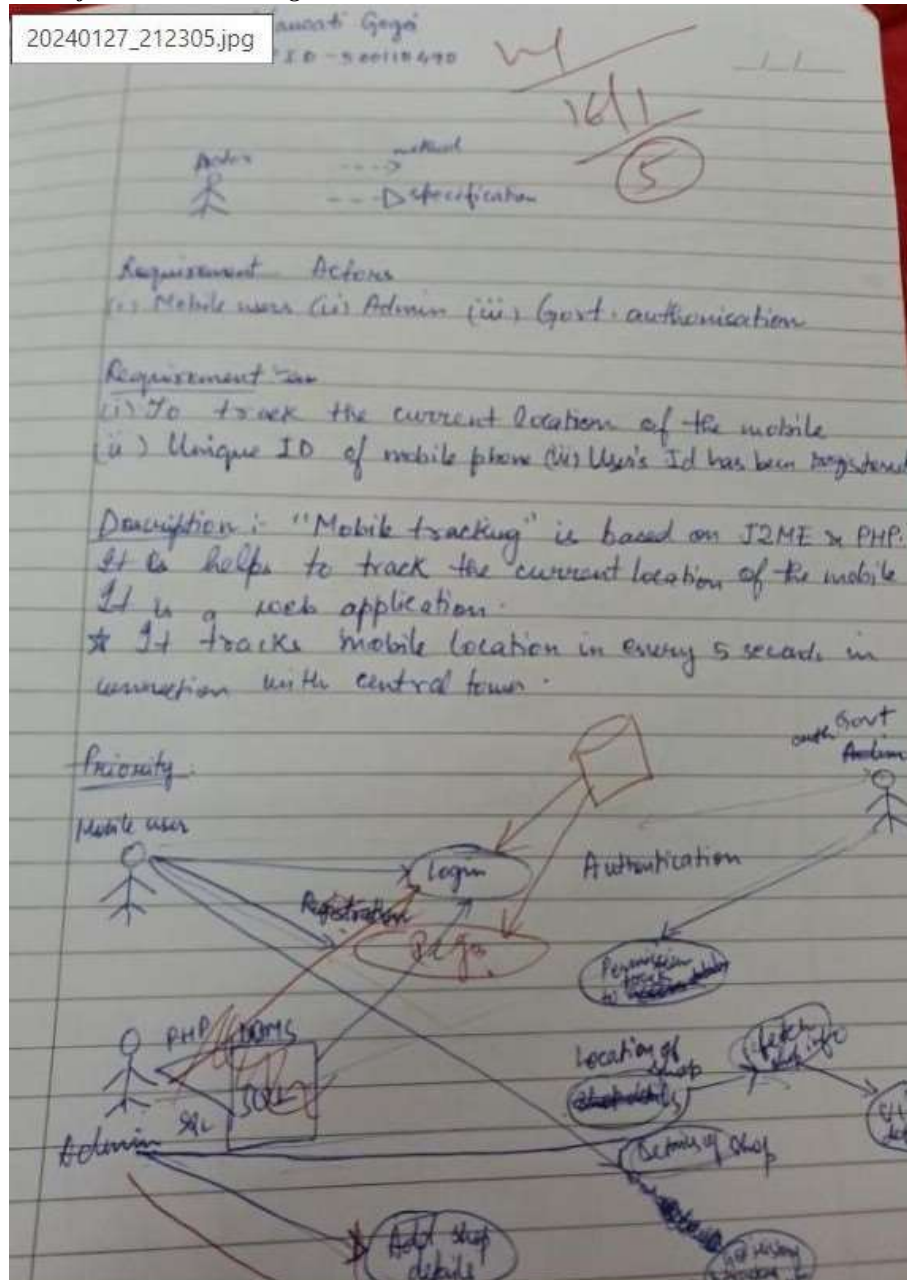 20240127_212305.jpg
Gogoi
ID - 500118490
16/1
5
Actor
method
specification
Requirement Actors
(i) Mobile users (ii) Admin (iii) Govt. authorisation
Requirement
(i) To track the current location of the mobile
(ii) Unique ID of mobile phone (iii) User's Id has been registered
Description :- "Mobile tracking" is based on J2ME & PHP.
It is helps to track the current location of the mobile
It is a web application.
* It tracks mobile location in every 5 seconds in
connection with central tower.
Govt
auth
Priority
Mobile user
Login
Authentication
Registration
Permission
to track
PHP
SQL
Location of
shop
fetch
shop info
Admin
SQL
Details of shop
Add shop
details
history